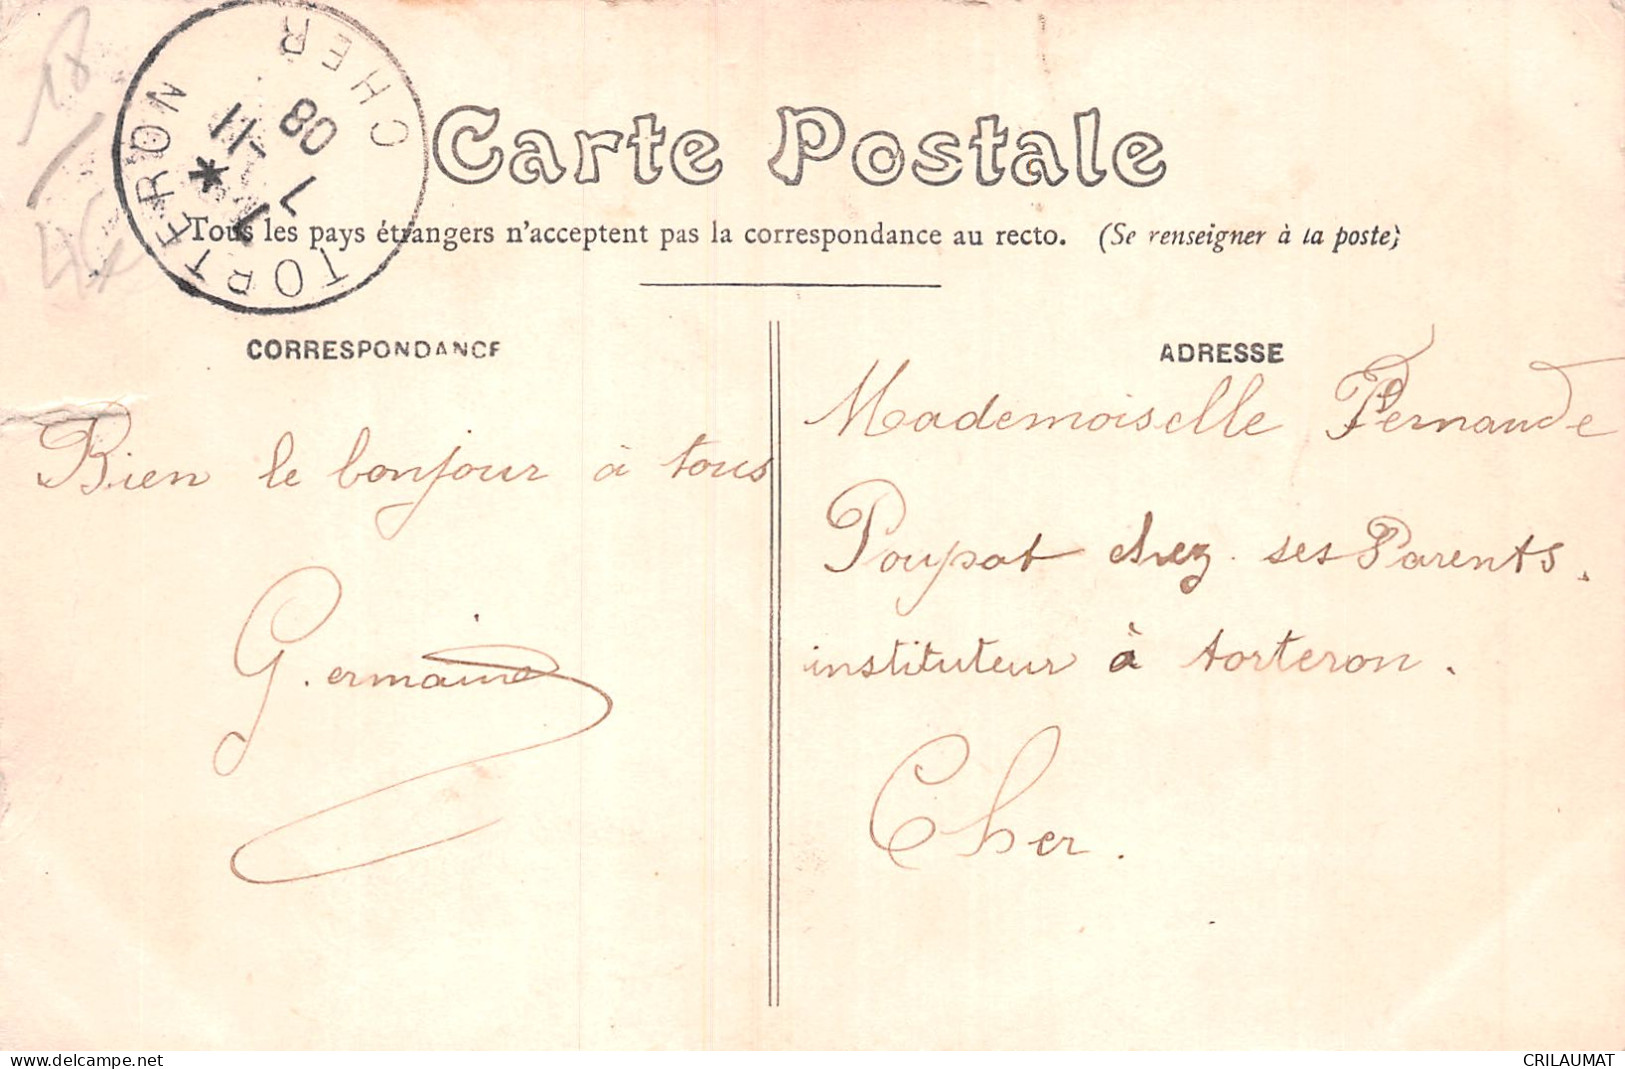 18
46
TORTERON
CHER
7
7-11
08
Carte Postale
Tous les pays étrangers n'acceptent pas la correspondance au recto. (Se renseigner à la poste)
CORRESPONDANCE
Bien le bonjour à tous
Germaine
ADRESSE
Mademoiselle Fernande
Poupat chez ses Parents.
instituteur à torteron.
Cher.
www.delcampe.net
CRILAUMAT